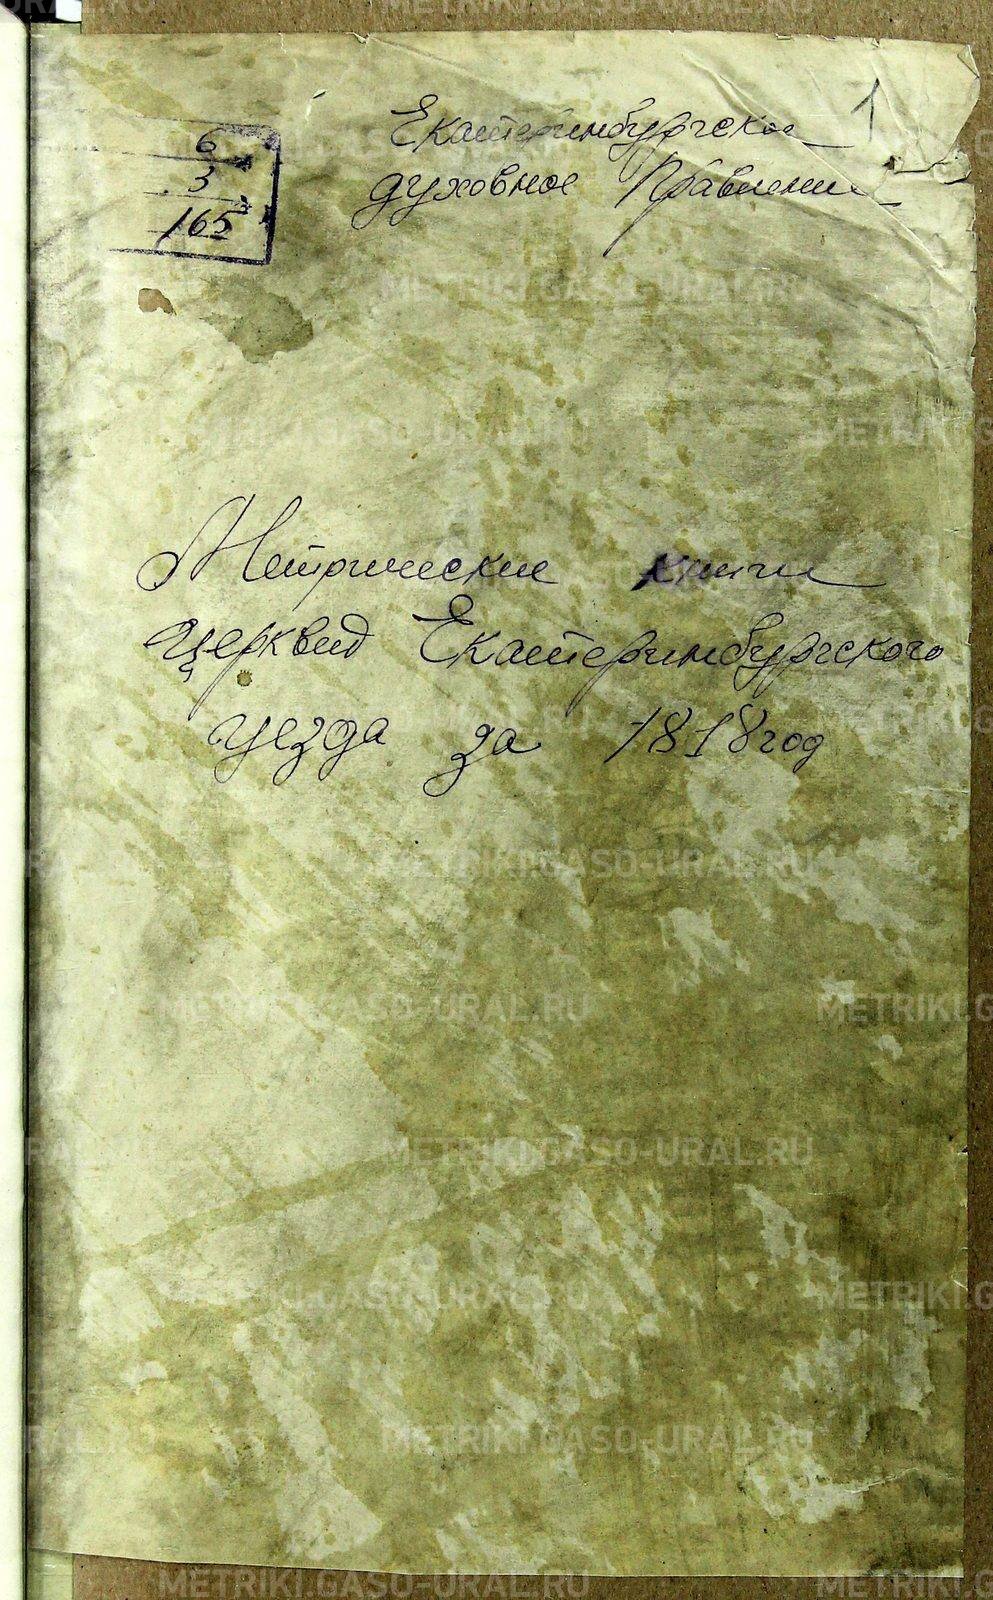 1
Екатеринбургское
духовное Правление
6
3
165
Метрические книги
церквей Екатеринбургского
уезда за 1818 год
METRIKI.GASO-URAL.RU